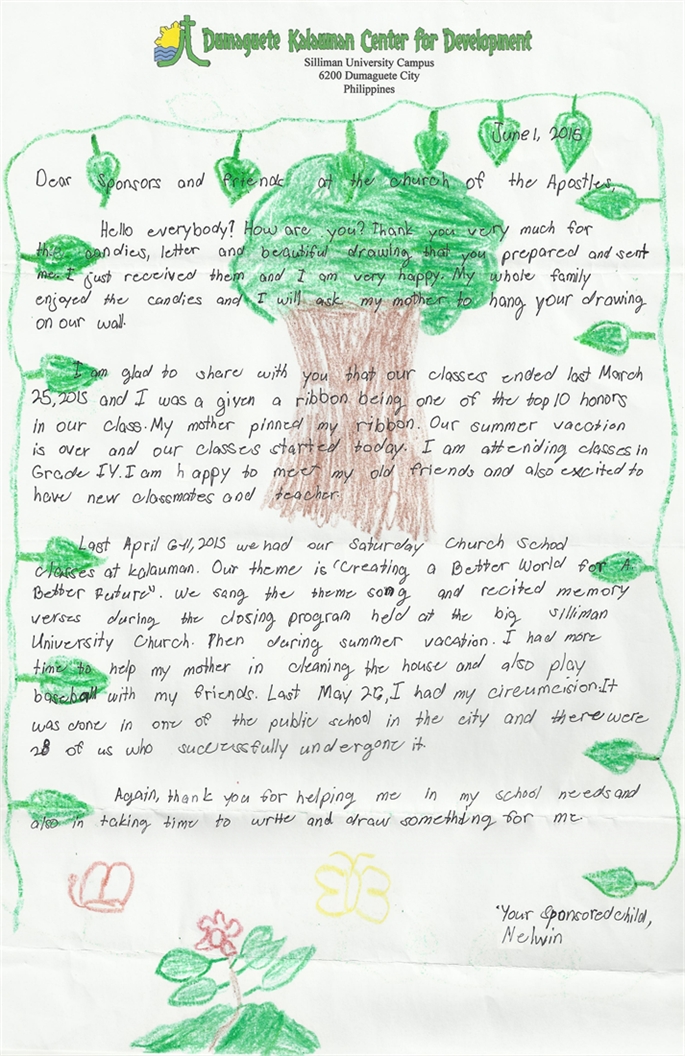 Dumaguete Kalauman Center for Development
Silliman University Campus
6200 Dumaguete City
Philippines
June 1, 2015
Dear Sponsors and friends at the church of the Apostles,
Hello everybody? How are you? Thank you very much for
the candies, letter and beautiful drawing that you prepared and sent
me. I just received them and I am very happy. My whole family
enjoyed the candies and I will ask my mother to hang your drawing
on our wall.
I am glad to share with you that our classes ended last March
25, 2015 and I was a given a ribbon being one of the top 10 honors
in our class. My mother pinned my ribbon. Our summer vacation
is over and our classes started today. I am attending classes in
Grade IV. I am happy to meet my old friends and also excited to
have new classmates and teacher.
Last April 6-11, 2015 we had our Saturday Church School
classes at Kalauman. Our theme is "Creating a Better World for A
Better Future". We sang the theme song and recited memory
verses during the closing program held at the big Silliman
University Church. Then during summer vacation. I had more
time to help my mother in cleaning the house and also play
baseball with my friends. Last May 26, I had my circumcision. It
was done in one of the public school in the city and there were
28 of us who successfully undergone it.
Again, thank you for helping me in my school needs and
also in taking time to write and draw something for me.
Your Sponsored child,
Nelwin